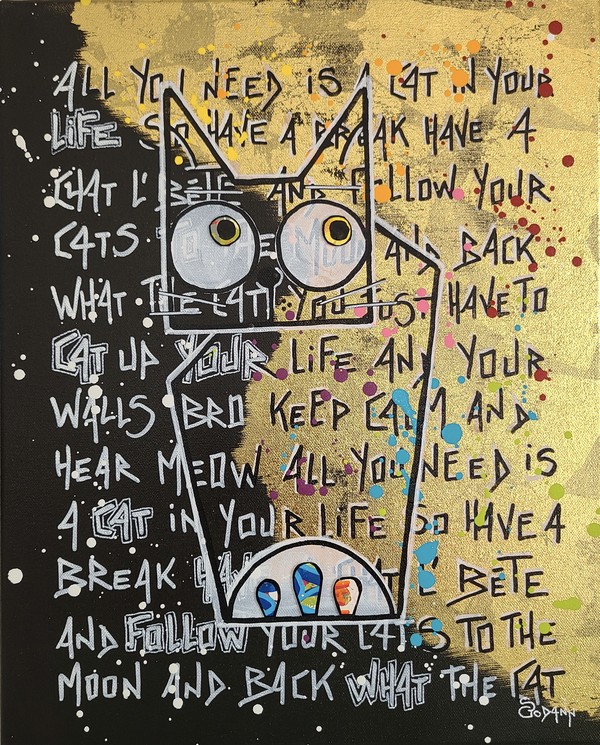 ALL YOU NEED iS A CAT iN YOUR
LiFE SO HAVE A BREAK HAVE A
CHAT L' BETE AND FOLLOW YOUR
CATS TO THE MOON AND BACK
WHAT THE CAT? YOU JUST HAVE TO
CAT UP YOUR LiFE AND YOUR
WALLS BRO KEEP CALM AND
HEAR MEOW ALL YOU NEED iS
A CAT iN YOUR LiFE SO HAVE A
BREAK HAVE A CHAT L' BETE
AND FOLLOW YOUR CATS TO THE
MOON AND BACK WHAT THE CAT
GODANN